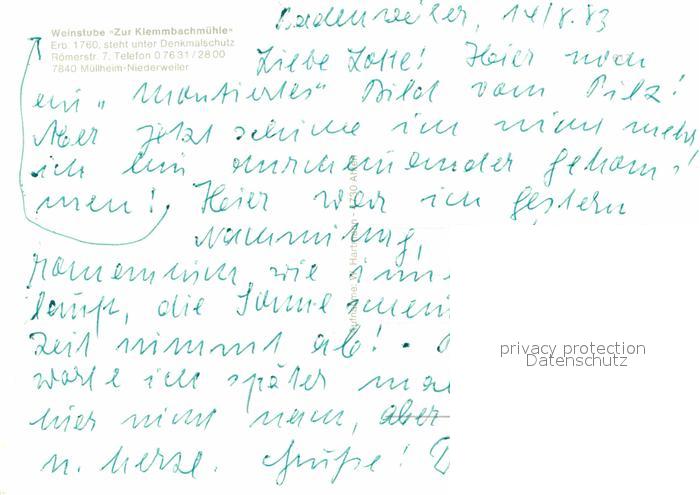 Weinstube "Zur Klemmbachmühle"
Erb. 1760, steht unter Denkmalschutz
Römerstr. 7, Telefon 0 76 31 / 28 00
7840 Müllheim-Niederweiler
Badenweiler, 14/8.83
Liebe Lotte! Hier noch
ein "Montiertes" Bild vom Pilz!
Aber jetzt schicke ich nicht mehr,
ich bin durcheinander gekom-
men! Hier war ich gestern
Nachmittag,
romantisch, wie imm
läuft, die Sonne schein
Zeit nimmt ab!
werde ich später
hier nicht nach, aber
u. herzl. Grüße!
privacy protection
Datenschutz